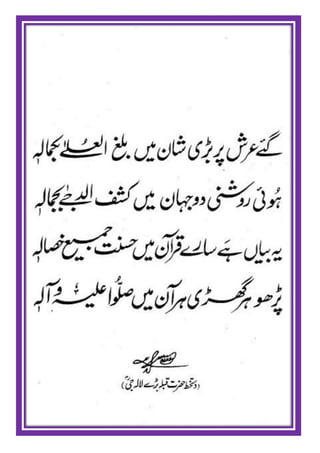 گئے عرش پر بڑی شان میں بلغ العُلےٰ بجمالہٖ
ہُوئی روشنی دو جہان میں کشف الدجےٰ بجمالہٖ
یہ بیاں ہَے سارے قرآن میں حسنت جمیعُ خصالہٖ
پڑھو ہر گھڑی ہر آن میں صلُّوا علیہِ و آلہٖ
(دستخط حضرت قبلہ بڑے لالہ جیؒ)